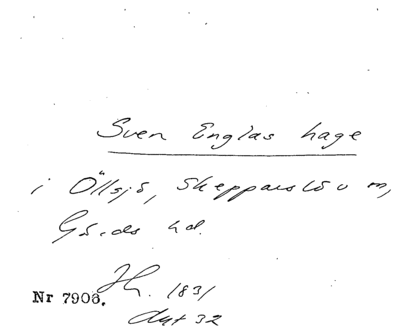 Sven Englas hage
i Öllsjö, Skepparslöv sn,
Gärds hd.
Nr 7906. 1831